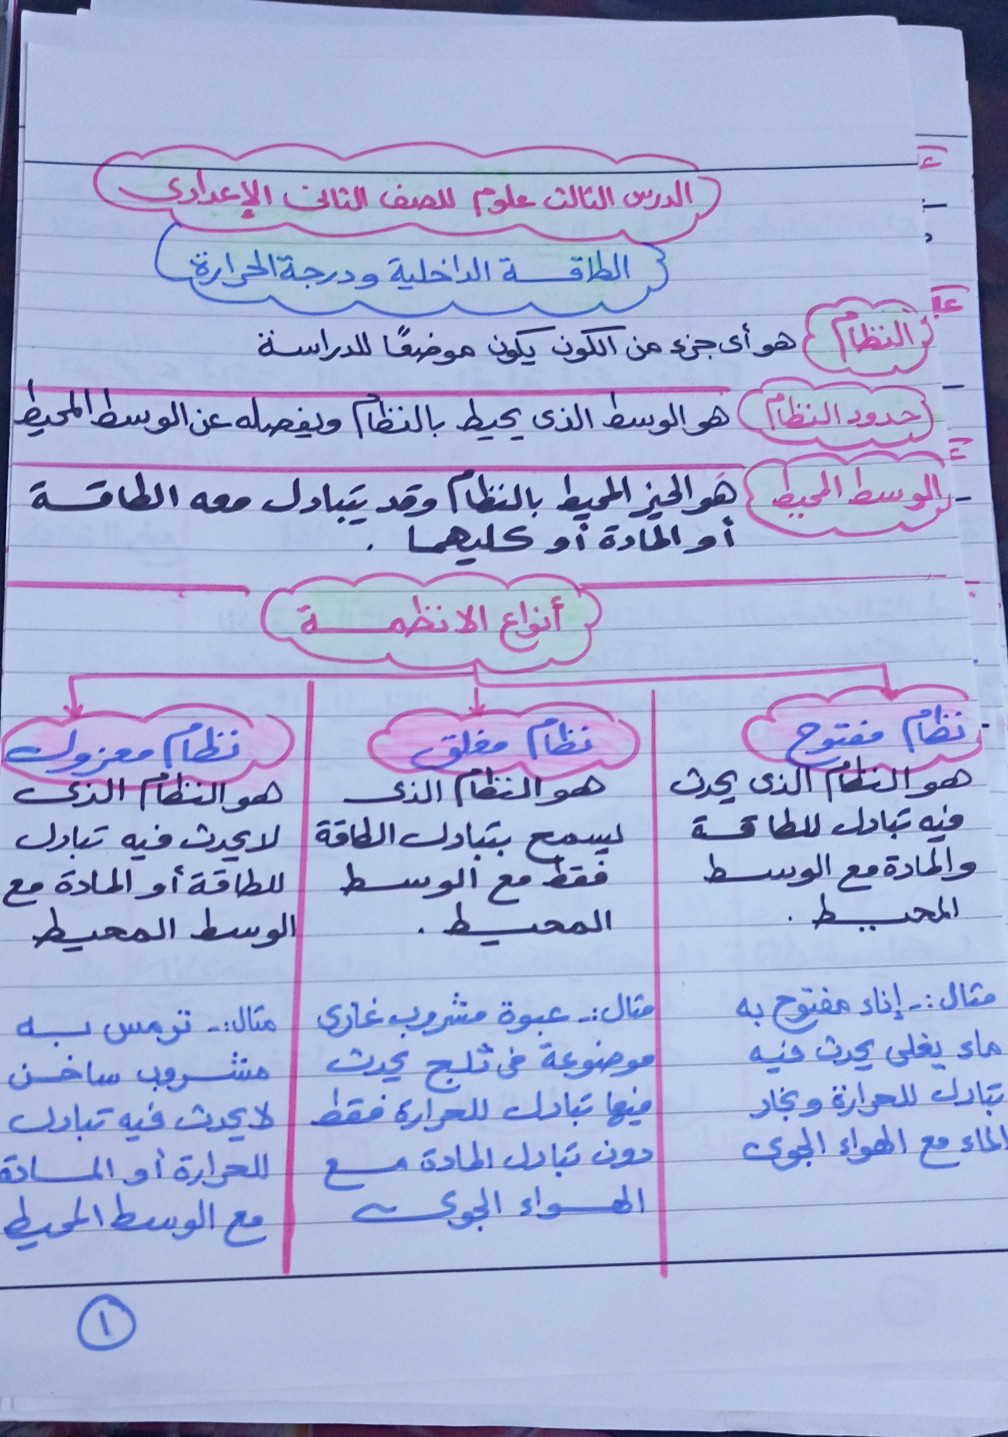 الدرس الثالث علوم للصف الثانى الإعدادى
الطاقة الداخلية ودرجة الحرارة
النظام هو أى جزء من الكون يكون موضعًا للدراسة
حدود النظام هو الوسط الذى يحيط بالنظام ويفصله عن الوسط المحيط
الوسط المحيط هو الحيز المحيط بالنظام وقد يتبادل معه الطاقة
أو المادة أو كليهما .
أنواع الانظمة
نظام مفتوح
هو النظام الذى يحدث
فيه تبادل للطاقة
والمادة مع الوسط
المحيط .
مثال :- إناء مفتوح به
ماء يغلى يحدث فيه
تبادل للحرارة وبخار
الماء مع الهواء الجوى
نظام مغلق
هو النظام الذى
يسمح بتبادل الطاقة
فقط مع الوسط
المحيط .
مثال :- عبوة مشروب غازى
موضوعة فى ثلج يحدث
فيها تبادل للحرارة فقط
دون تبادل المادة مع
الهواء الجوى
نظام معزول
هو النظام الذى
لا يحدث فيه تبادل
للطاقة أو المادة مع
الوسط المحيط
مثال :- ترمس به
مشروب ساخن
لا يحدث فيه تبادل
للحرارة أو المادة
مع الوسط المحيط
١